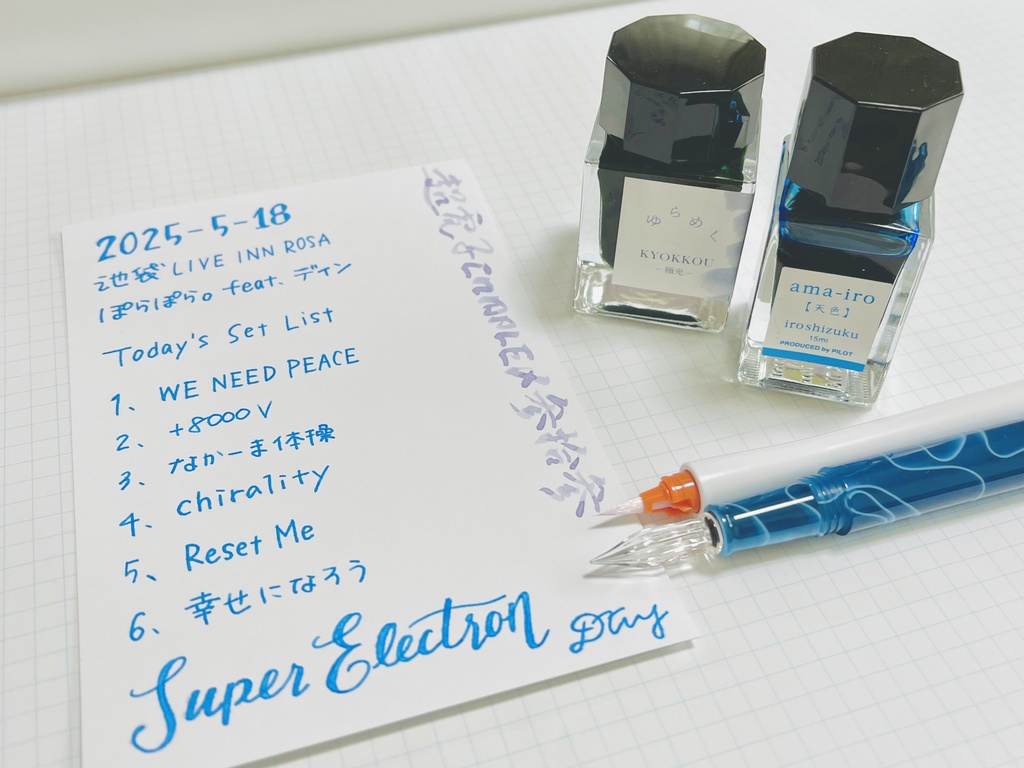 2025-5-18
池袋 LIVE INN ROSA
ぽらぽら。 feat. ディン
Today's Set List
1、 WE NEED PEACE
2、 +8000V
3、 なかーま体操
4、 chirality
5、 Reset Me
6、 幸せになろう
Super Electron Day
参拾参
ゆらめく
KYOKKOU
－極光－
ama-iro
【天色】
iroshizuku
15ml
PRODUCED by PILOT